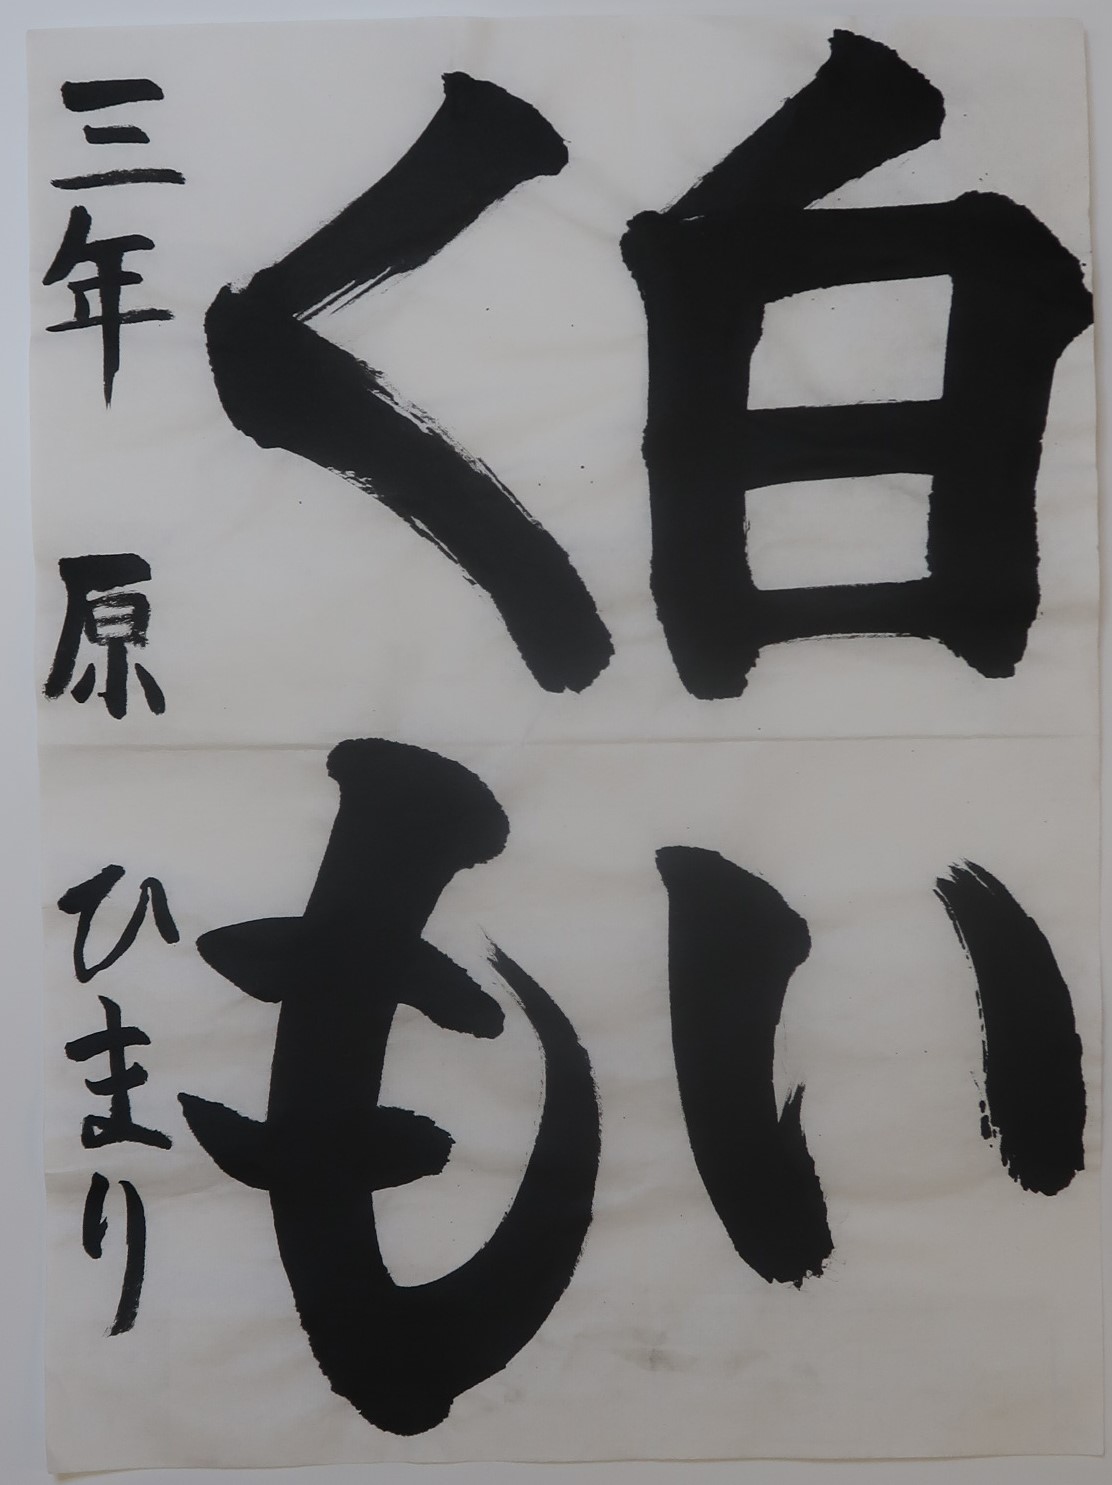 白い
くも
三年 原 ひまり